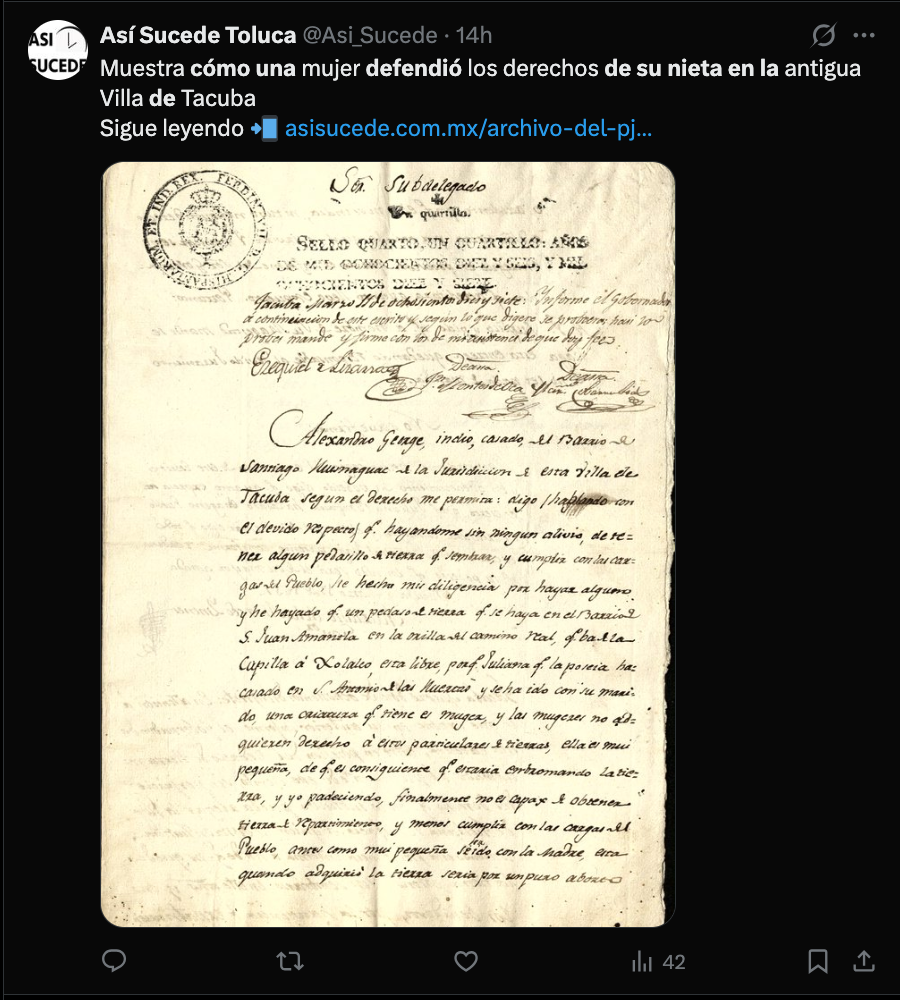 ASI
SUCEDE
Así Sucede Toluca @Asi_Sucede · 14h
Muestra cómo una mujer defendió los derechos de su nieta en la antigua
Villa de Tacuba
Sigue leyendo 📲 asisucede.com.mx/archivo-del-pj...
HISPANIARUM. ET. IND. REX. FERDIN. VII. D. G.
Sōr. Subdelegado
Un quartillo.
SELLO QUARTO, UN QUARTILLO: AÑOS
DE MIL OCHOCIENTOS DIEZ Y SEIS, Y MIL
OCHOCIENTOS DIEZ Y SIETE.
Tacuba Marzo de ochosientos dies y siete: Informe el Gobernador
a continuacion de este escrito y segun lo que digere se probeera; hasi lo
probei mande y firme con los de mi asistencia de que doy fee.
Ezequiel Lizarra
Deassa. Deassa.
Alexandro George, indio, casado, del Barrio de
Santiago de la Jurisdiccion de esta Villa de
Tacuba segun el derecho me permita: digo (hablando con
el devido respecto) q.e hayandome sin ningun alivio, de te=
ner algun pedasillo de tierra q.e sembrar, y cumplir con las car-
gas del Pueblo, he hecho mis diligencia por hayar alguno
y he hayado q.e un pedaso de tierra q.e se haya en el Barrio de
S. Juan Amanola en la orilla del camino real, q.e ba de la
Capilla á Xolalco, esta libre, porq.e Juliana q.e la poseia ha-
casado en S. Antonio de las Huertas y se ha ido con su mari-
do, una criatura q.e tiene es muger, y las mugeres no ad-
quieren derecho á estos particulares de tierras, ella es mui
pequeña, de q.e es consiguiente q.e estaria embromando la tie-
rra, y yo padeciendo, finalmente no es capax de obtener
tierra de repartimiento, y menos cumplir con las cargas del
Pueblo, antes como mui pequeña se ha ido, con la Madre, esta
quando adquirió la tierra seria por un puro
42